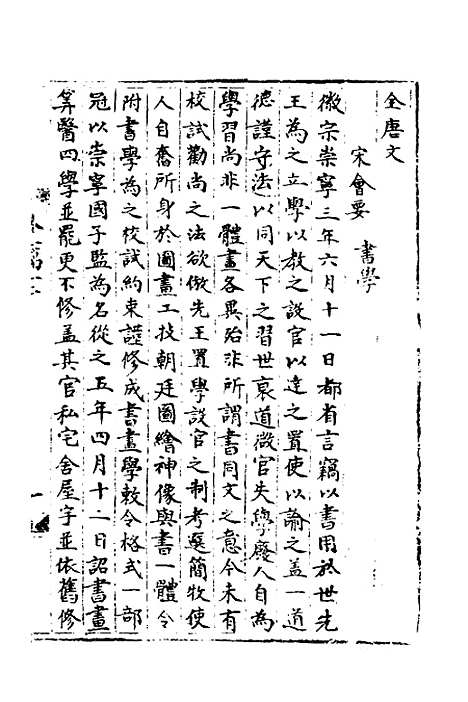 全唐文
宋會要 書學
徽宗崇寧三年六月十一日都省言竊以書用於世先
王為之立學以教之設官以達之置使以諭之蓋一道
德謹守法以同天下之習世衰道微官失學廢人自為
學習尚非一體畫各異殆非所謂書同文之意今未有
校試勸尚之法欲倣先王置學設官之制考選簡牧使
人自奮所身於圖畫工技朝廷圖繪神像與書一體令
附書學為之校試約束謹修成書畫學敕令格式一部
冠以崇寧國子監為名從之五年四月十二日詔書畫
算醫四學並罷更不修蓋其官私宅舍屋宇並依舊修